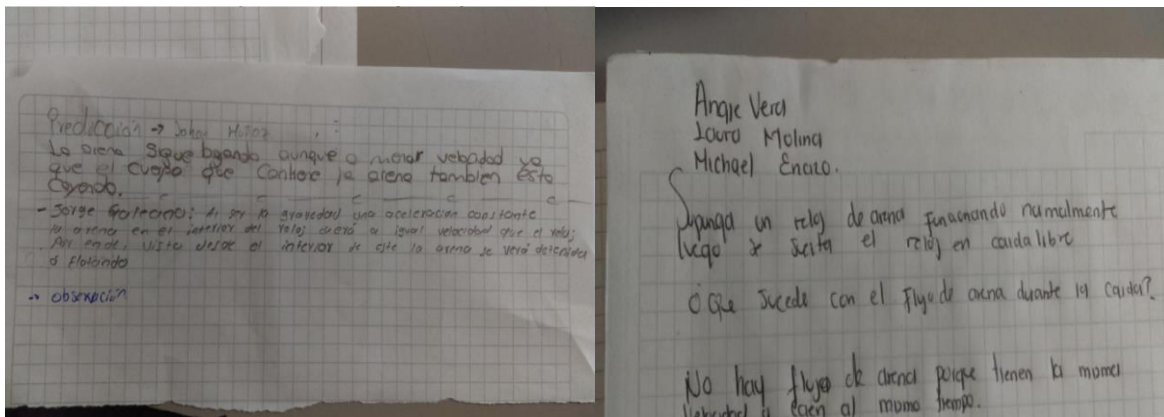 Predicción → John
La arena sigue bajando aunque a menor velocidad ya
que el cuerpo que contiene la arena tambien esta
cayendo.
- Jorge Galeano: Al ser la gravedad una aceleración constante
la arena en el interior del reloj caerá a igual velocidad que el reloj
Por ende, visto desde el interior de este la arena se verá detenida
o flotando
-> observación
Angie Vera
Laura Molina
Michael
Suponga un reloj de arena funcionando normalmente
luego se suelta el reloj en caida libre
¿Que sucede con el flujo de arena durante la caida?
No hay flujo de arena porque tienen la misma
velocidad y caen al mismo tiempo.